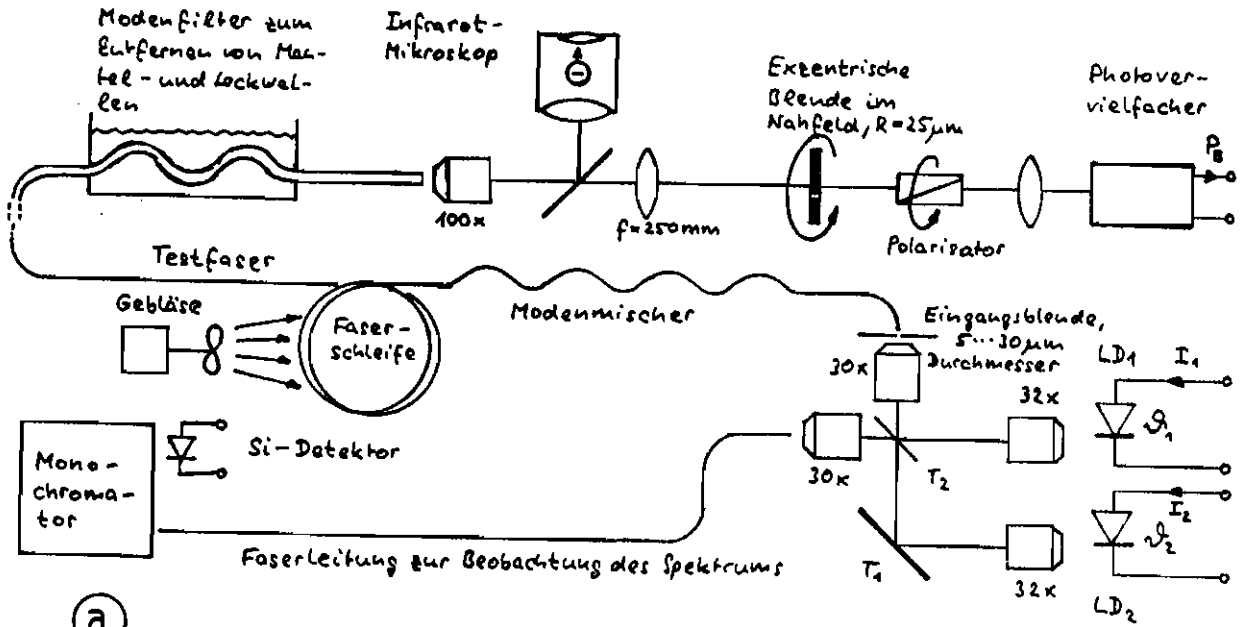 Modenfilter zum
Entfernen von Man-
tel- und Leckwel-
len
Infrarot-
Mikroskop
Exzentrische
Blende im
Nahfeld, R=25µm
Photover-
vielfacher
P_B
100x
f=250mm
Polarisator
Testfaser
Gebläse
Faser-
schleife
Modenmischer
Eingangsblende,
5...30µm
Durchmesser
30x
32x
LD₁
I₁
ϑ₁
Mono-
chroma-
tor
Si-Detektor
30x
T₂
I₂
ϑ₂
Faserleitung zur Beobachtung des Spektrums
T₁
32x
LD₂
a